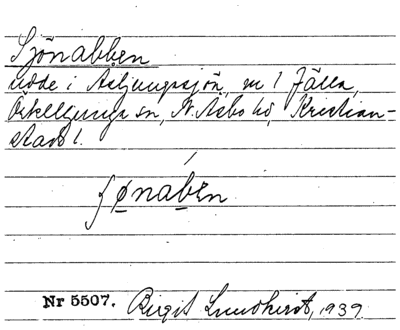 Sjönabben
udde i Asljungasjön, m 1 Fälla,
Örkelljunga sn, N. Åsbo hd, Kristian-
stads l.
ʃønabεn
Nr 5507. Birgit Lundkvist, 1939